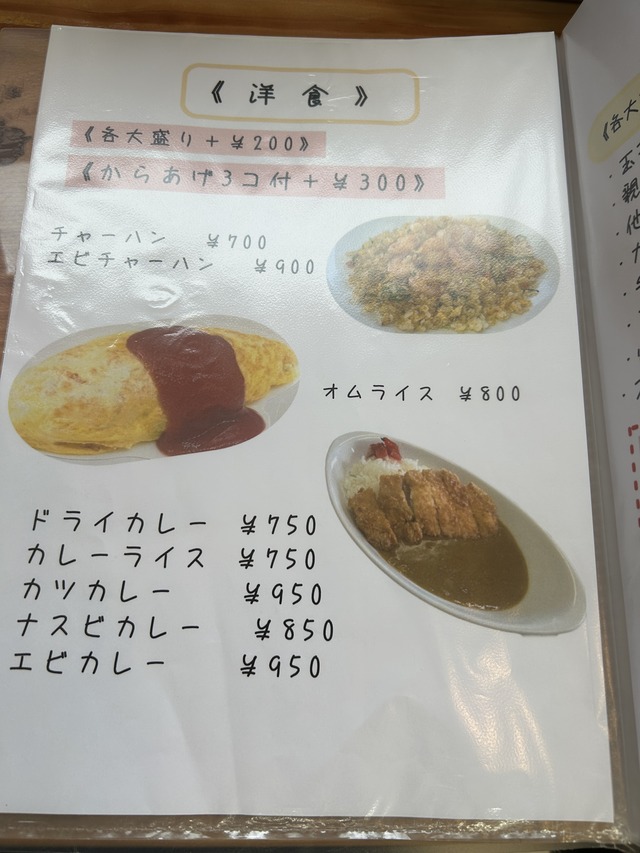 《洋食》
《各大盛り+¥200》
《からあげ3コ付+¥300》
チャーハン ¥700
エビチャーハン ¥900
オムライス ¥800
ドライカレー ¥750
カレーライス ¥750
カツカレー ¥950
ナスビカレー ¥850
エビカレー ¥950
《各大
・玉
・親
・他